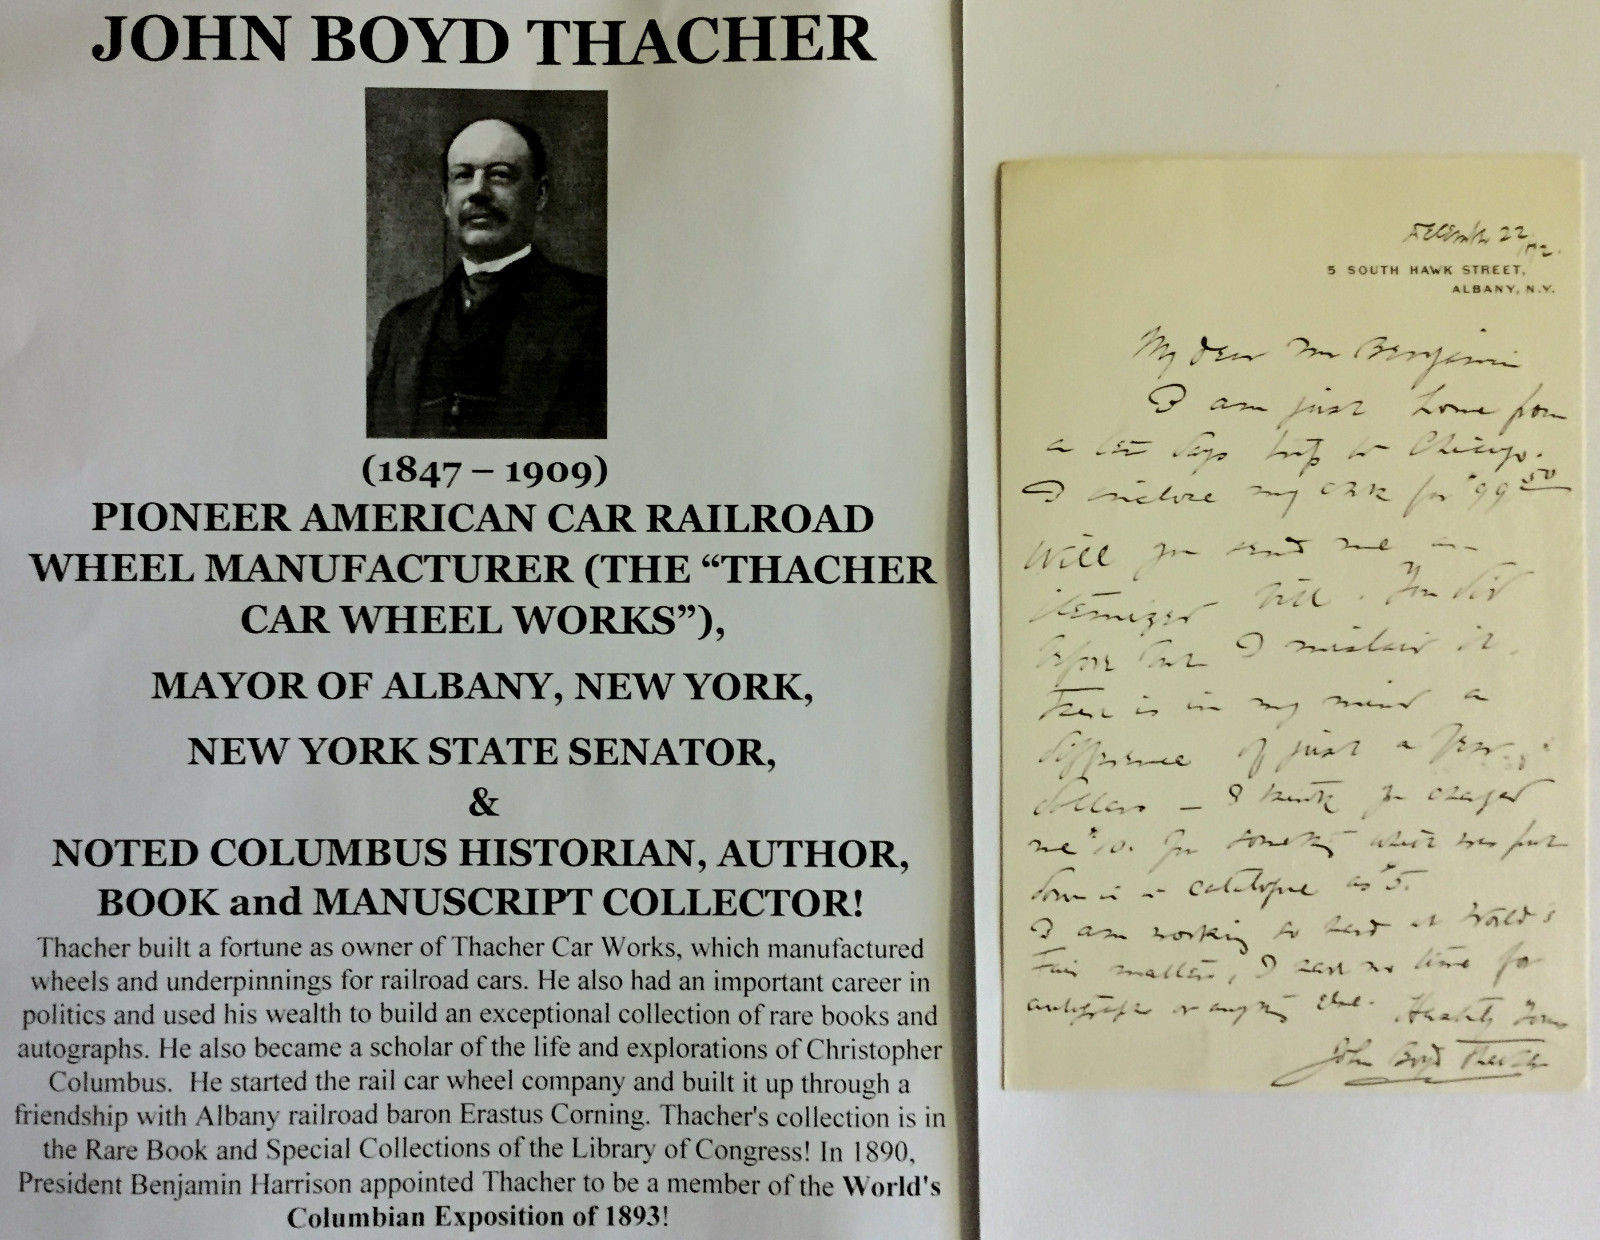 JOHN BOYD THACHER
(1847 – 1909)
PIONEER AMERICAN CAR RAILROAD
WHEEL MANUFACTURER (THE “THACHER
CAR WHEEL WORKS”),
MAYOR OF ALBANY, NEW YORK,
NEW YORK STATE SENATOR,
&
NOTED COLUMBUS HISTORIAN, AUTHOR,
BOOK and MANUSCRIPT COLLECTOR!
Thacher built a fortune as owner of Thacher Car Works, which manufactured
wheels and underpinnings for railroad cars. He also had an important career in
politics and used his wealth to build an exceptional collection of rare books and
autographs. He also became a scholar of the life and explorations of Christopher
Columbus. He started the rail car wheel company and built it up through a
friendship with Albany railroad baron Erastus Corning. Thacher's collection is in
the Rare Book and Special Collections of the Library of Congress! In 1890,
President Benjamin Harrison appointed Thacher to be a member of the World's
Columbian Exposition of 1893!
December 22
5 SOUTH HAWK STREET,
ALBANY, N.Y.
My dear Mr Benjamin
I am just home from
a ten days trip to Chicago.
I enclose my check for $99.50
Will you send me an
itemized bill. You did
before but I mislaid it.
There is in my mind a
difference of just a few
dollars — I think you charged
me $10. for something which was put
down in a catalogue as $5.
I am working so hard at World's
Fair matters, I have no time for
autographs or anything else. Hastily Yours
John Boyd Thacher